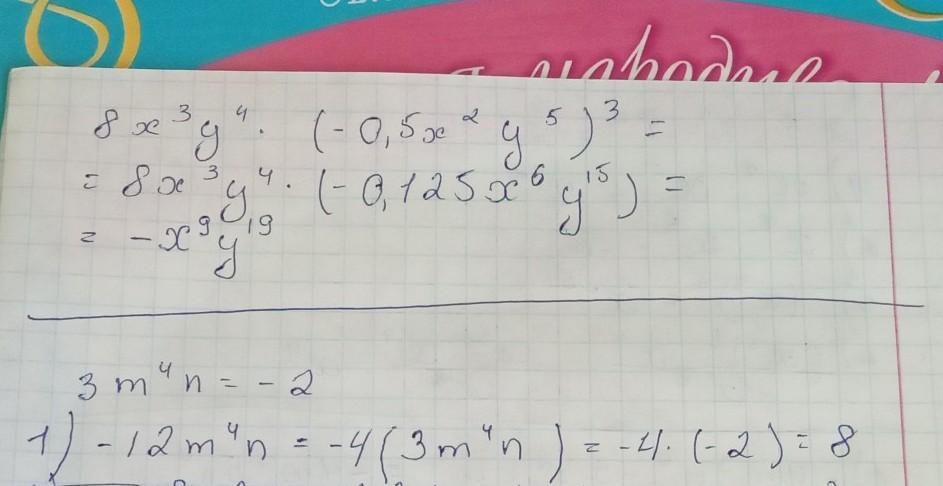 8x³y⁴ · (-0,5x²y⁵)³ =
= 8x³y⁴ · (-0,125x⁶y¹⁵) =
= -x⁹y¹⁹
3m⁴n = -2
1) -12m⁴n = -4(3m⁴n) = -4 · (-2) = 8